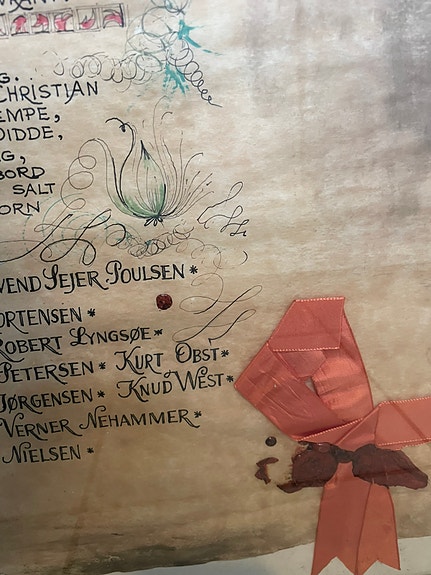 G.
CHRISTIAN
EMPE,
DIDDE,
G,
BORD
SALT
ORN
VEND SEJER POULSEN *
ORTENSEN *
ROBERT LYNGSØE *
PETERSEN * KURT OBST *
JØRGENSEN * KNUD WEST *
VERNER NEHAMMER *
NIELSEN *